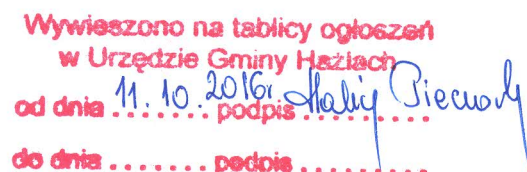 Wywieszono na tablicy ogłoszeń
w Urzędzie Gminy Hażlach
od dnia 11.10.2016r. podpis
do dnia ....... podpis .........